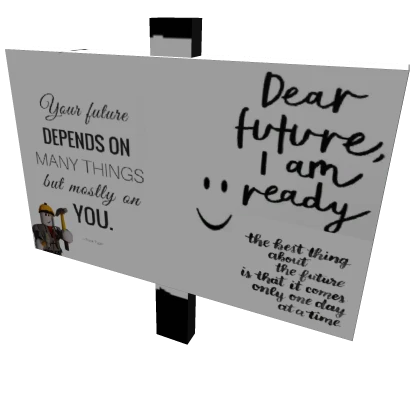 Your future
DEPENDS ON
MANY THINGS
but mostly on
YOU.
Dear
future,
I am
ready
the best thing
about
the future
is that it comes
only one day
at a time